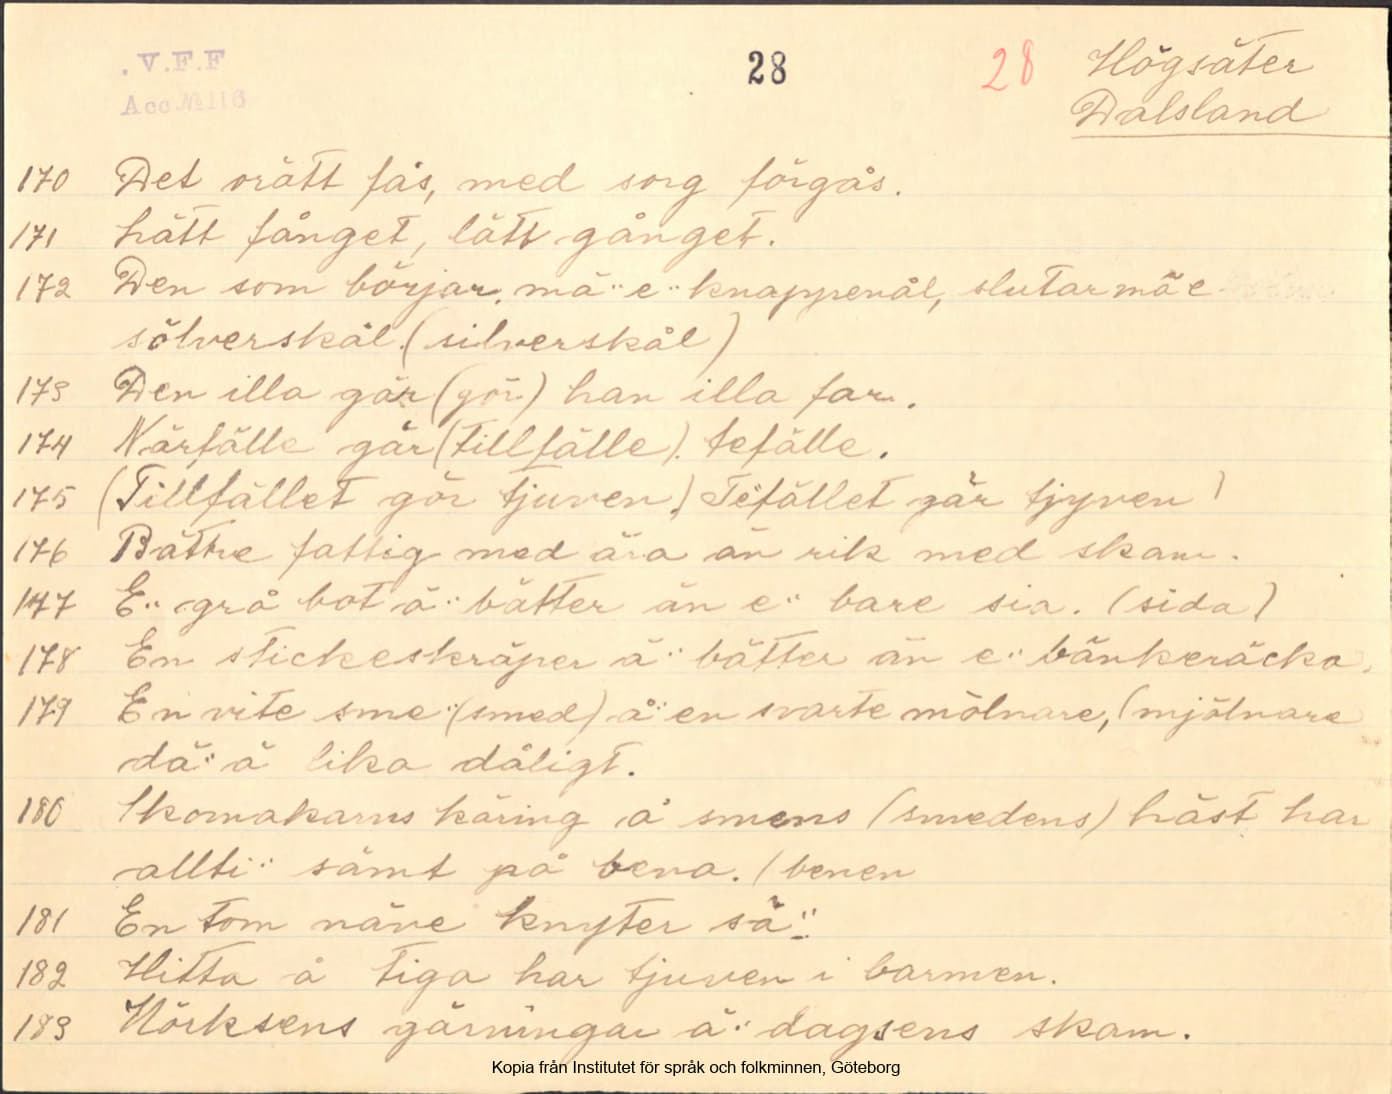 V.F.F
Acc.№116
28
28
Högsäter
Dalsland
170 Det orätt fås, med sorg förgås.
171 Lätt fånget, lätt gånget.
172 Den som börjar mä" e" knappenål, slutar mä e
sölverskål. (silverskål)
173 Den illa gär (gör) han illa far.
174 Närfälle gär (tillfälle). tefälle.
175 (Tillfället gör tjuven) Tefället gär tjyven)
176 Bättre fattig med ära än rik med skam.
177 E" grå bot ä" bätter än e" bare sia. (sida)
178 En stickeskräper ä" bätter än e" bänkeräcka.
179 En vite sme" (smed) å" en svarte mölnare, (mjölnare
dä" ä lika dåligt.
180 Skomakarns käring å smens (smedens) häst har
allti" sämt på bena. (benen
181 En tom näve knyter sä"
182 Hitta å tiga har tjuven i barmen.
183 Mörksens gärningar ä" dagsens skam.
Kopia från Institutet för språk och folkminnen, Göteborg